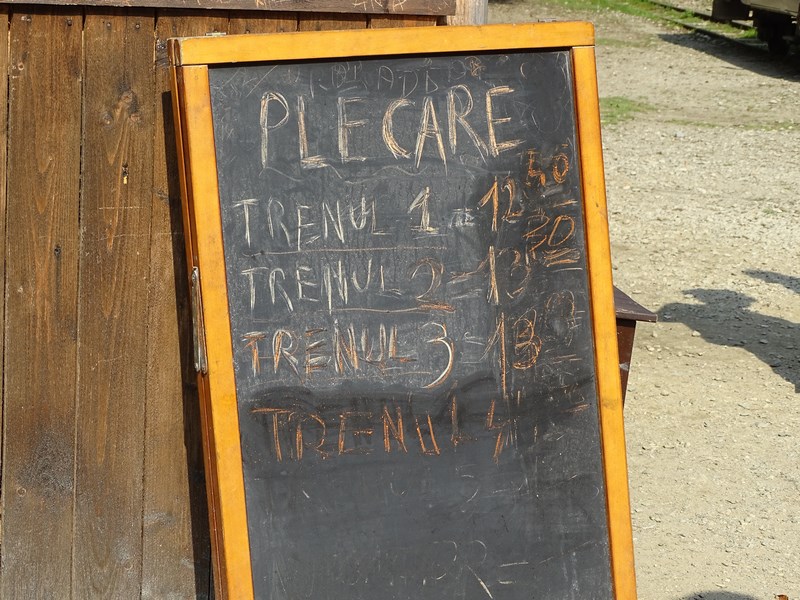 PLECARE
TRENUL 1 = 12 40
TRENUL 2 = 13 30
TRENUL 3 = 13
TRENUL 4